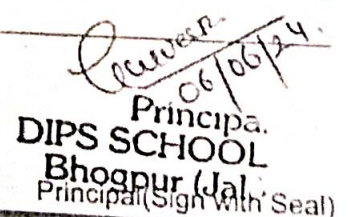 06/06/24.
Principa.
DIPS SCHOOL
Bhogpur (Jal.
Principal(Sign With Seal)